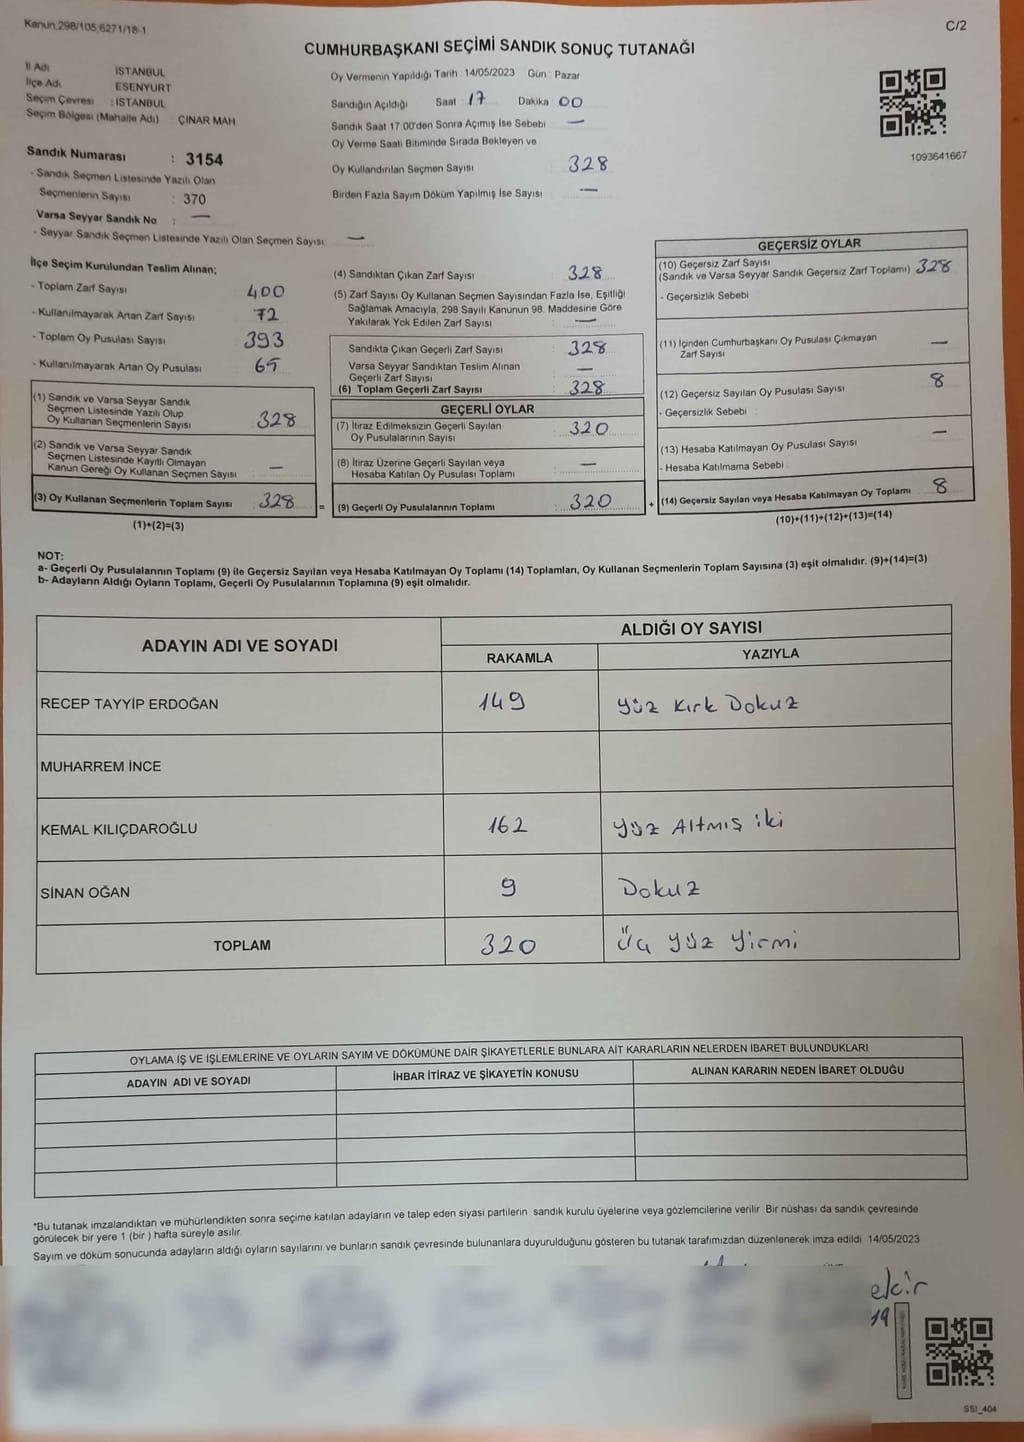 Kanun;298/105;6271/18-1
C/2
CUMHURBAŞKANI SEÇİMİ SANDIK SONUÇ TUTANAĞI
İl Adı İSTANBUL
İlçe Adı ESENYURT
Seçim Çevresi : İSTANBUL
Seçim Bölgesi (Mahalle Adı) ÇINAR MAH
Sandık Numarası : 3154
- Sandık Seçmen Listesinde Yazılı Olan
Seçmenlerin Sayısı : 370
Varsa Seyyar Sandık No : —
- Seyyar Sandık Seçmen Listesinde Yazılı Olan Seçmen Sayısı: —
Oy Vermenin Yapıldığı Tarih :14/05/2023 Gün Pazar
Sandığın Açıldığı Saat 17 Dakika 00
Sandık Saat 17:00'den Sonra Açımış İse Sebebi —
Oy Verme Saati Bitiminde Sırada Bekleyen ve
Oy Kullandırılan Seçmen Sayısı 328
Birden Fazla Sayım Döküm Yapılmış İse Sayısı : —
1093641667
İlçe Seçim Kurulundan Teslim Alınan;
- Toplam Zarf Sayısı 400
- Kullanılmayarak Artan Zarf Sayısı 72
- Toplam Oy Pusulası Sayısı 393
- Kullanılmayarak Artan Oy Pusulası 65
(1) Sandık ve Varsa Seyyar Sandık
Seçmen Listesinde Yazılı Olup
Oy Kullanan Seçmenlerin Sayısı 328
(2) Sandık ve Varsa Seyyar Sandık
Seçmen Listesinde Kayıtlı Olmayan
Kanun Gereği Oy Kullanan Seçmen Sayısı —
(3) Oy Kullanan Seçmenlerin Toplam Sayısı 328
(1)+(2)=(3)
(4) Sandıktan Çıkan Zarf Sayısı : 328
(5) Zarf Sayısı Oy Kullanan Seçmen Sayısından Fazla İse, Eşitliği
Sağlamak Amacıyla, 298 Sayılı Kanunun 98. Maddesine Göre
Yakılarak Yok Edilen Zarf Sayısı : —
Sandıkta Çıkan Geçerli Zarf Sayısı 328
Varsa Seyyar Sandıktan Teslim Alınan
Geçerli Zarf Sayısı —
(6) Toplam Geçerli Zarf Sayısı 328
GEÇERLİ OYLAR
(7) İtiraz Edilmeksizin Geçerli Sayılan
Oy Pusulalarının Sayısı 320
(8) İtiraz Üzerine Geçerli Sayılan veya
Hesaba Katılan Oy Pusulası Toplamı —
= (9) Geçerli Oy Pusulalarının Toplamı 320 +
GEÇERSİZ OYLAR
(10) Geçersiz Zarf Sayısı
(Sandık ve Varsa Seyyar Sandık Geçersiz Zarf Toplamı) 328
- Geçersizlik Sebebi
(11) İçinden Cumhurbaşkanı Oy Pusulası Çıkmayan
Zarf Sayısı —
(12) Geçersiz Sayılan Oy Pusulası Sayısı 8
- Geçersizlik Sebebi :
(13) Hesaba Katılmayan Oy Pusulası Sayısı —
- Hesaba Katılmama Sebebi
(14) Geçersiz Sayılan veya Hesaba Katılmayan Oy Toplamı 8
(10)+(11)+(12)+(13)=(14)
NOT:
a- Geçerli Oy Pusulalarının Toplamı (9) ile Geçersiz Sayılan veya Hesaba Katılmayan Oy Toplamı (14) Toplamları, Oy Kullanan Seçmenlerin Toplam Sayısına (3) eşit olmalıdır. (9)+(14)=(3)
b- Adayların Aldığı Oyların Toplamı, Geçerli Oy Pusulalarının Toplamına (9) eşit olmalıdır.
ADAYIN ADI VE SOYADI ALDIĞI OY SAYISI
RAKAMLA YAZIYLA
RECEP TAYYİP ERDOĞAN 149 Yüz Kırk Dokuz
MUHARREM İNCE
KEMAL KILIÇDAROĞLU 162 Yüz Altmış iki
SİNAN OĞAN 9 Dokuz
TOPLAM 320 Üç yüz yirmi
OYLAMA İŞ VE İŞLEMLERİNE VE OYLARIN SAYIM VE DÖKÜMÜNE DAİR ŞİKAYETLERLE BUNLARA AİT KARARLARIN NELERDEN İBARET BULUNDUKLARI
ADAYIN ADI VE SOYADI İHBAR İTİRAZ VE ŞİKAYETİN KONUSU ALINAN KARARIN NEDEN İBARET OLDUĞU
*Bu tutanak imzalandıktan ve mühürlendikten sonra seçime katılan adayların ve talep eden siyasi partilerin sandık kurulu üyelerine veya gözlemcilerine verilir. Bir nüshası da sandık çevresinde
görülecek bir yere 1 (bir ) hafta süreyle asılır.
Sayım ve döküm sonucunda adayların aldığı oyların sayılarını ve bunların sandık çevresinde bulunanlara duyurulduğunu gösteren bu tutanak tarafımızdan düzenlenerek imza edildi. 14/05/2023
ekir
19
SSI_404